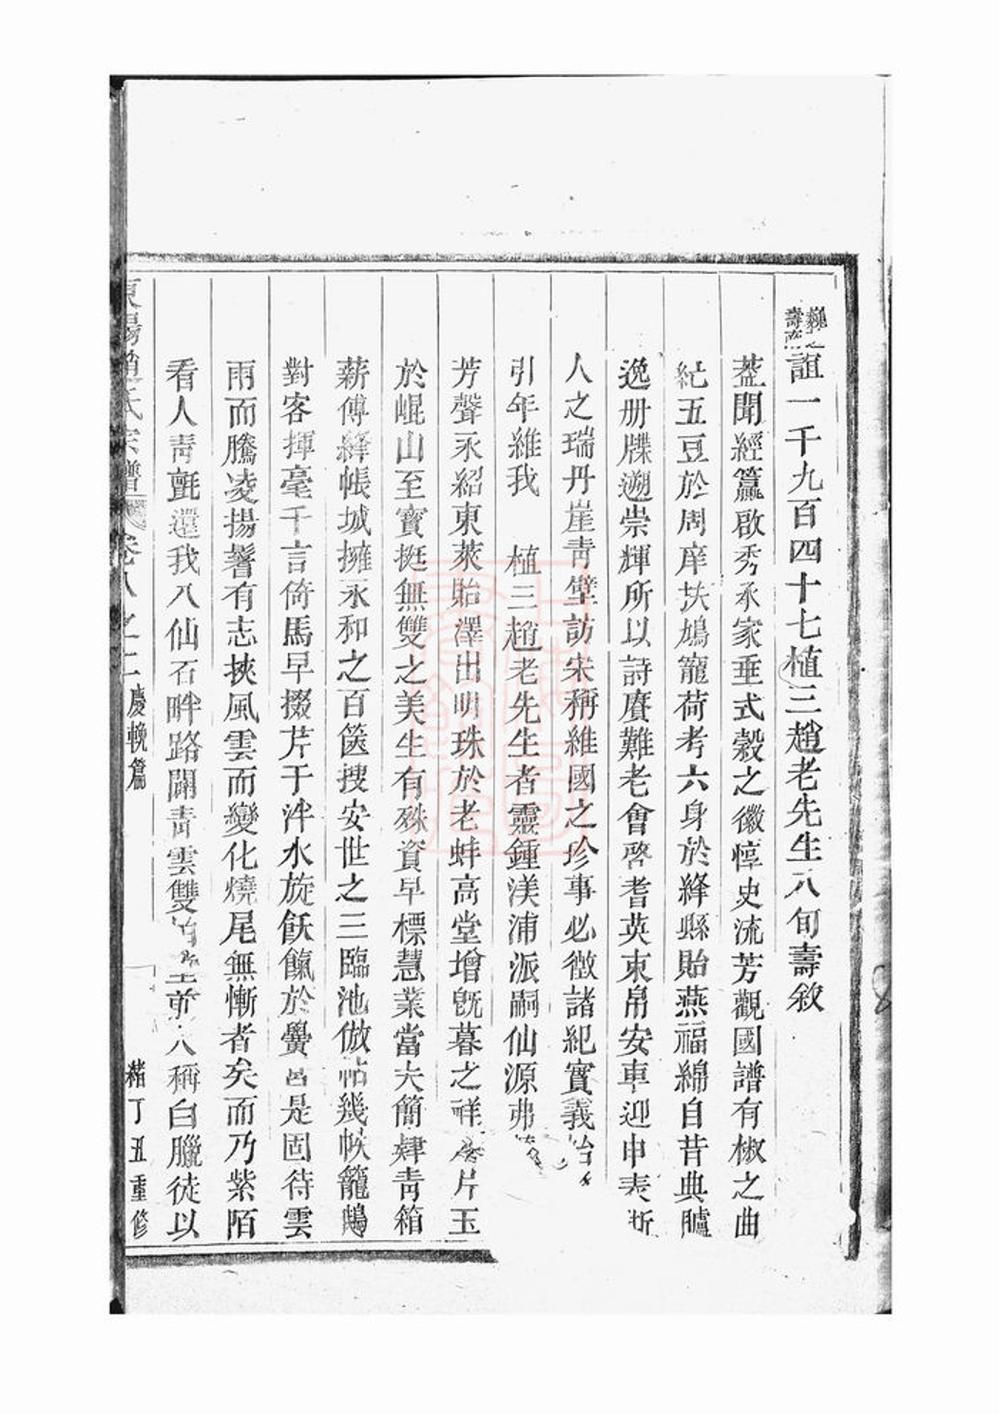 誼一千九百四十七植三趙老先生八旬壽敘
葢聞經籯啟秀承家垂式穀之徽惇史流芳觀國譜有椒之曲
紀五豆於周庠扶鳩籠荷考六身於絳縣貽燕福綿自昔典臚
逸册牒遡崇輝所以詩賡難老會啓耆英束帛安車迎申表
人之瑞丹崖青壁訪宋稱維國之珍事必徵諸紀實義
引年維我 植三趙老先生者靈鍾渼浦派嗣仙源弗
芳聲永紹東萊貽澤出明珠於老蚌高堂增旣暮之祥 片玉
於崐山至寳挺無雙之美生有殊資早標慧業當夫簡肄靑箱
薪傳絳帳城擁永和之百篋搜安世之三臨池倣帖幾帙籠鵝
對客揮毫千言倚馬早掇芹于泮水旋飫餼於黌宫是固待雲
雨而騰凌揚鬐有志挾風雲而變化燒尾無慚者矣而乃紫陌
看人靑氈還我八仙石畔路闢靑雲雙 堂前人稱白臘徒以
東陽趙氏宗譜 卷八之二 慶輓篇 緖丁丑重修